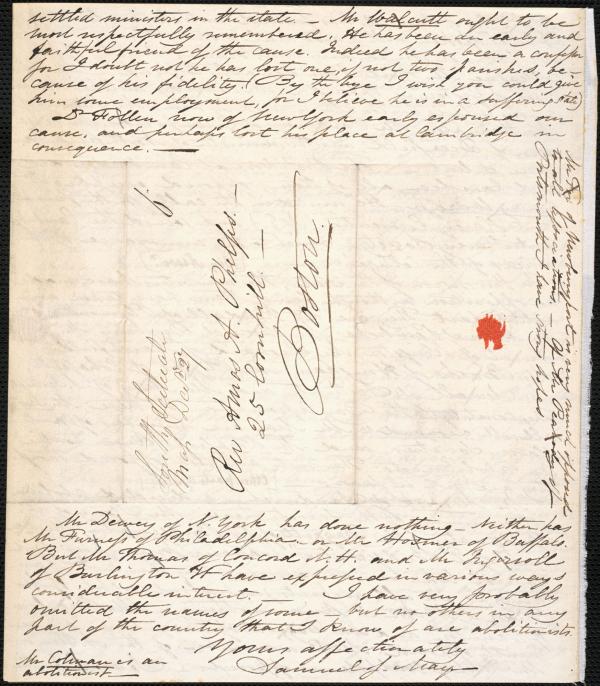 settled ministers in the state. — Mr Walcutt ought to be
most respectfully remembered. He has been an early and
faithful friend of the cause. Indeed he has been a
for I doubt not he has lost one, if not two parishes, be-
cause of his fidelity. (By the bye I wish you could give
him some employment, for I believe he is in a suffering state)
Dr Follen now of New York early espoused our
cause, and perhaps lost his place at Cambridge in
consequence. —
Mr Fox of Newburyport is very much opposed
to all Associations. — Of Mr Peabody of
Portsmouth I have strong hopes
6
South Scituate
Mass Dec 27
Rev Amos A. Phelps. —
25 Cornhill. —
Boston
Mr Dewey of N. York has done nothing. Neither has
Mr Furness of Philadelphia. or Mr Hosmer of Buffalo.
But Mr Thomas of Concord N. H. and Mr Ingersoll
of Burlington Vt have expressed in various ways
considerable interest. I have very probably
omitted the names of some — but no others in any
part of the country that I know of are abolitionists.
Yours affectionately
Samuel J. May
Mr Colman is an
abolitionist —